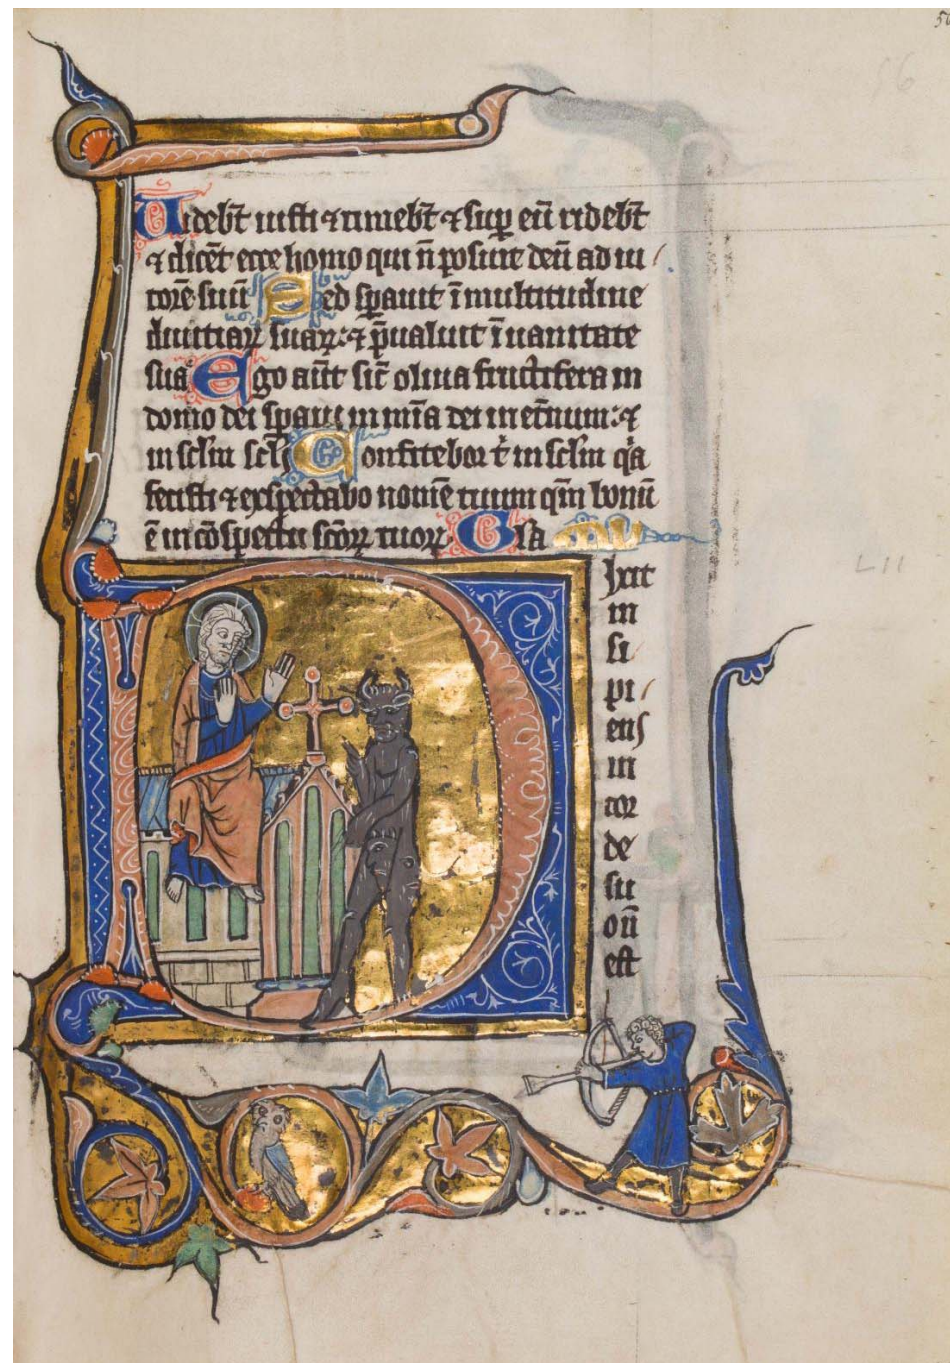 56
56
Videbt iusti ⁊ timebt ⁊ sup eū ridebt
⁊ dicēt ecce homo qui ñ posuit deū ad iu
torē suū Sed spauit ī multitudine
diuitiaꝝ suaꝝ: ⁊ p̄ualuit ī uanitate
sua Ego aūt sič oliua fructifera in
domo dei spaui in mīa dei in et̄num: ⁊
in sclm scli Confitebor t̄ in sclm qa
fecisti ⁊ exspectabo nomē tuum qm̄ bonū
ē in cōspectu scōꝝ tuoꝝ Gla
LII
Dixit
in
si
pi
ens
in
cor
de
su
oñ
est